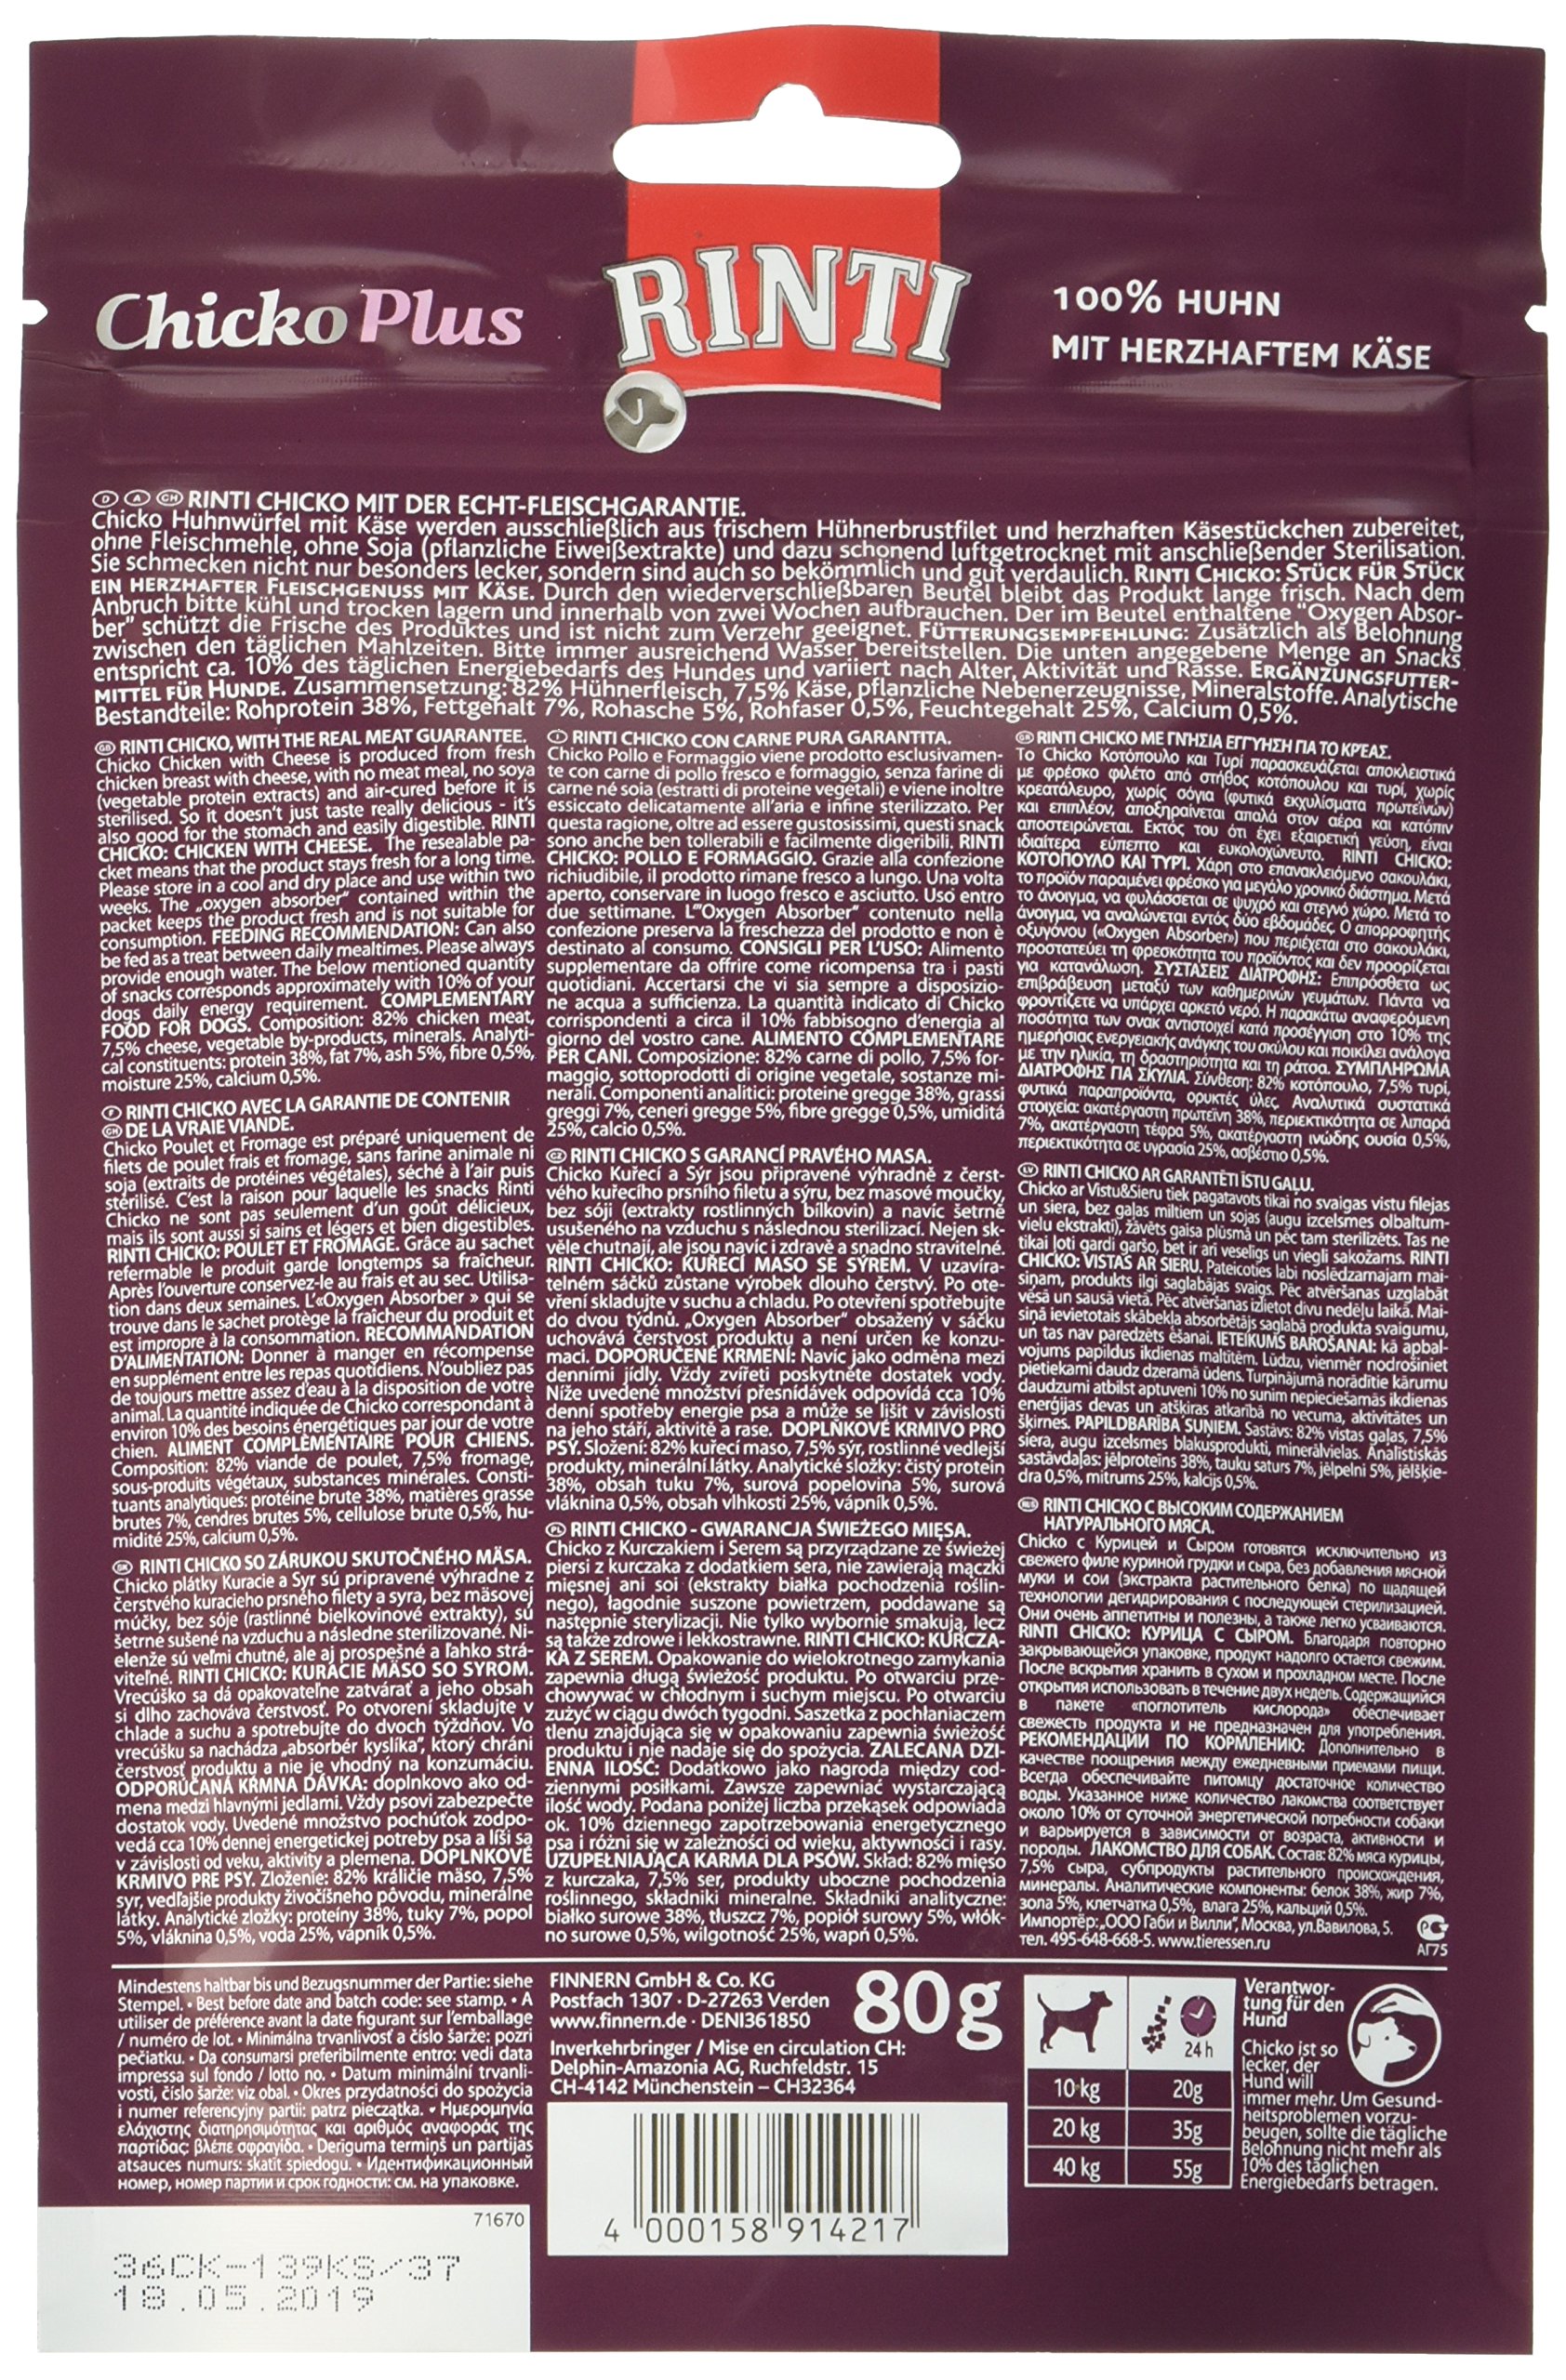 Chicko Plus
RINTI
100% HUHN
MIT HERZHAFTEM KÄSE
D A CH RINTI CHICKO MIT DER ECHT-FLEISCHGARANTIE.
Chicko Huhnwürfel mit Käse werden ausschließlich aus frischem Hühnerbrustfilet und herzhaften Käsestückchen zubereitet,
ohne Fleischmehle, ohne Soja (pflanzliche Eiweißextrakte) und dazu schonend luftgetrocknet mit anschließender Sterilisation.
Sie schmecken nicht nur besonders lecker, sondern sind auch so bekömmlich und gut verdaulich. RINTI CHICKO: STÜCK FÜR STÜCK
EIN HERZHAFTER FLEISCHGENUSS MIT KÄSE. Durch den wiederverschließbaren Beutel bleibt das Produkt lange frisch. Nach dem
Anbruch bitte kühl und trocken lagern und innerhalb von zwei Wochen aufbrauchen. Der im Beutel enthaltene "Oxygen Absor-
ber" schützt die Frische des Produktes und ist nicht zum Verzehr geeignet. FÜTTERUNGSEMPFEHLUNG: Zusätzlich als Belohnung
zwischen den täglichen Mahlzeiten. Bitte immer ausreichend Wasser bereitstellen. Die unten angegebene Menge an Snacks
entspricht ca. 10% des täglichen Energiebedarfs des Hundes und variiert nach Alter, Aktivität und Rasse. ERGÄNZUNGSFUTTER-
MITTEL FÜR HUNDE. Zusammensetzung: 82% Hühnerfleisch, 7,5% Käse, pflanzliche Nebenerzeugnisse, Mineralstoffe. Analytische
Bestandteile: Rohprotein 38%, Fettgehalt 7%, Rohasche 5%, Rohfaser 0,5%, Feuchtegehalt 25%, Calcium 0,5%.
GB RINTI CHICKO, WITH THE REAL MEAT GUARANTEE.
Chicko Chicken with Cheese is produced from fresh
chicken breast with cheese, with no meat meal, no soya
(vegetable protein extracts) and air-cured before it is
sterilised. So it doesn't just taste really delicious - it's
also good for the stomach and easily digestible. RINTI
CHICKO: CHICKEN WITH CHEESE. The resealable pa-
cket means that the product stays fresh for a long time.
Please store in a cool and dry place and use within two
weeks. The „oxygen absorber" contained within the
packet keeps the product fresh and is not suitable for
consumption. FEEDING RECOMMENDATION: Can also
be fed as a treat between daily mealtimes. Please always
provide enough water. The below mentioned quantity
of snacks corresponds approximately with 10% of your
dogs daily energy requirement. COMPLEMENTARY
FOOD FOR DOGS. Composition: 82% chicken meat,
7,5% cheese, vegetable by-products, minerals. Analyti-
cal constituents: protein 38%, fat 7%, ash 5%, fibre 0,5%,
moisture 25%, calcium 0,5%.
F RINTI CHICKO AVEC LA GARANTIE DE CONTENIR
CH DE LA VRAIE VIANDE.
Chicko Poulet et Fromage est préparé uniquement de
filets de poulet frais et fromage, sans farine animale ni
soja (extraits de protéines végétales), séché à l'air puis
stérilisé. C'est la raison pour laquelle les snacks Rinti
Chicko ne sont pas seulement d'un goût délicieux,
mais ils sont aussi si sains et légers et bien digestibles.
RINTI CHICKO: POULET ET FROMAGE. Grâce au sachet
refermable le produit garde longtemps sa fraîcheur.
Après l'ouverture conservez-le au frais et au sec. Utilisa-
tion dans deux semaines. L'«Oxygen Absorber » qui se
trouve dans le sachet protège la fraîcheur du produit et
est impropre à la consommation. RECOMMANDATION
D'ALIMENTATION: Donner à manger en récompense
en supplément entre les repas quotidiens. N'oubliez pas
de toujours mettre assez d'eau à la disposition de votre
animal. La quantité indiquée de Chicko correspondant à
environ 10% des besoins énergétiques par jour de votre
chien. ALIMENT COMPLÉMENTAIRE POUR CHIENS.
Composition: 82% viande de poulet, 7,5% fromage,
sous-produits végétaux, substances minérales. Consti-
tuants analytiques: protéine brute 38%, matières grasse
brutes 7%, cendres brutes 5%, cellulose brute 0,5%, hu-
midité 25%, calcium 0,5%.
SK RINTI CHICKO SO ZÁRUKOU SKUTOČNÉHO MÄSA.
Chicko plátky Kuracie a Syr sú pripravené výhradne z
čerstvého kuracieho prsného filety a syra, bez mäsovej
múčky, bez sóje (rastlinné bielkovinové extrakty), sú
šetrne sušené na vzduchu a následne sterilizované. Ni-
elenže sú veľmi chutné, ale aj prospešné a ľahko strá-
viteľné. RINTI CHICKO: KURACIE MÄSO SO SYROM.
Vrecúško sa dá opakovateľne zatvárať a jeho obsah
si dlho zachováva čerstvosť. Po otvorení skladujte v
chlade a suchu a spotrebujte do dvoch týždňov. Vo
vrecúšku sa nachádza „absorbér kyslíka", ktorý chráni
čerstvosť produktu a nie je vhodný na konzumáciu.
ODPORÚČANÁ KŔMNA DÁVKA: doplnkovo ako od-
mena medzi hlavnými jedlami. Vždy psovi zabezpečte
dostatok vody. Uvedené množstvo pochúťok zodpo-
vedá cca 10% dennej energetickej potreby psa a líši sa
v závislosti od veku, aktivity a plemena. DOPLNKOVÉ
KRMIVO PRE PSY. Zloženie: 82% králičie mäso, 7,5%
syr, vedľajšie produkty živočíšneho pôvodu, minerálne
látky. Analytické zložky: proteíny 38%, tuky 7%, popol
5%, vláknina 0,5%, voda 25%, vápnik 0,5%.
I RINTI CHICKO CON CARNE PURA GARANTITA.
Chicko Pollo e Formaggio viene prodotto esclusivamen-
te con carne di pollo fresco e formaggio, senza farine di
carne né soia (estratti di proteine vegetali) e viene inoltre
essiccato delicatamente all'aria e infine sterilizzato. Per
questa ragione, oltre ad essere gustosissimi, questi snack
sono anche ben tollerabili e facilmente digeribili. RINTI
CHICKO: POLLO E FORMAGGIO. Grazie alla confezione
richiudibile, il prodotto rimane fresco a lungo. Una volta
aperto, conservare in luogo fresco e asciutto. Uso entro
due settimane. L'"Oxygen Absorber" contenuto nella
confezione preserva la freschezza del prodotto e non è
destinato al consumo. CONSIGLI PER L'USO: Alimento
supplementare da offrire come ricompensa tra i pasti
quotidiani. Accertarsi che vi sia sempre a disposizio-
ne acqua a sufficienza. La quantità indicato di Chicko
corrispondenti a circa il 10% fabbisogno d'energia al
giorno del vostro cane. ALIMENTO COMPLEMENTARE
PER CANI. Composizione: 82% carne di pollo, 7,5% for-
maggio, sottoprodotti di origine vegetale, sostanze mi-
nerali. Componenti analitici: proteine gregge 38%, grassi
greggi 7%, ceneri gregge 5%, fibre gregge 0,5%, umiditá
25%, calcio 0,5%.
CZ RINTI CHICKO S GARANCÍ PRAVÉHO MASA.
Chicko Kuřecí a Sýr jsou připravené výhradně z čerst-
vého kuřecího prsního filetu a sýru, bez masové moučky,
bez sóji (extrakty rostlinných bílkovin) a navíc šetrně
usušeného na vzduchu s následnou sterilizací. Nejen sk-
věle chutnají, ale jsou navíc i zdravě a snadno stravitelné.
RINTI CHICKO: KUŘECÍ MASO SE SÝREM. V uzavíra-
telném sáčků zůstane výrobek dlouho čerstvý. Po ote-
vření skladujte v suchu a chladu. Po otevření spotřebujte
do dvou týdnů. „Oxygen Absorber" obsažený v sáčku
uchovává čerstvost produktu a není určen ke konzu-
maci. DOPORUČENÉ KRMENÍ: Navíc jako odměna mezi
denními jídly. Vždy zvířeti poskytněte dostatek vody.
Níže uvedené množství přesnídávek odpovídá cca 10%
denní spotřeby energie psa a může se lišit v závislosti
na jeho stáří, aktivitě a rase. DOPLŇKOVÉ KRMIVO PRO
PSY. Složení: 82% kuřecí maso, 7,5% sýr, rostlinné vedlejší
produkty, minerální látky. Analytické složky: čistý protein
38%, obsah tuku 7%, surová popelovina 5%, surová
vláknina 0,5%, obsah vlhkosti 25%, vápník 0,5%.
PL RINTI CHICKO - GWARANCJA ŚWIEŻEGO MIĘSA.
Chicko z Kurczakiem i Serem są przyrządzane ze świeżej
piersi z kurczaka z dodatkiem sera, nie zawierają mączki
mięsnej ani soi (ekstrakty białka pochodzenia roślin-
nego), łagodnie suszone powietrzem, poddawane są
następnie sterylizacji. Nie tylko wybornie smakują, lecz
są także zdrowe i lekkostrawne. RINTI CHICKO: KURCZA-
KA Z SEREM. Opakowanie do wielokrotnego zamykania
zapewnia długą świeżość produktu. Po otwarciu prze-
chowywać w chłodnym i suchym miejscu. Po otwarciu
zużyć w ciągu dwóch tygodni. Saszetka z pochłaniaczem
tlenu znajdująca się w opakowaniu zapewnia świeżość
produktu i nie nadaje się do spożycia. ZALECANA DZI-
ENNA ILOŚĆ: Dodatkowo jako nagroda między cod-
ziennymi posiłkami. Zawsze zapewniać wystarczającą
ilość wody. Podana poniżej liczba przekąsek odpowiada
ok. 10% dziennego zapotrzebowania energetycznego
psa i różni się w zależności od wieku, aktywności i rasy.
UZUPEŁNIAJĄCA KARMA DLA PSÓW. Skład: 82% mięso
z kurczaka, 7,5% ser, produkty uboczne pochodzenia
roślinnego, składniki mineralne. Składniki analityczne:
białko surowe 38%, tłuszcz 7%, popiół surowy 5%, włók-
no surowe 0,5%, wilgotność 25%, wapń 0,5%.
GR RINTI CHICKO ΜΕ ΓΝΉΣΙΑ ΕΓΓΎΗΣΗ ΓΙΑ ΤΟ ΚΡΈΑΣ.
Το Chicko Κοτόπουλο και Τυρί παρασκευάζεται αποκλειστικά
με φρέσκο φιλέτο από στήθος κοτόπουλου και τυρί, χωρίς
κρεατάλευρο, χωρίς σόγια (φυτικά εκχυλίσματα πρωτεϊνών)
και επιπλέον, αποξηραίνεται απαλά στον αέρα και κατόπιν
αποστειρώνεται. Εκτός του ότι έχει εξαιρετική γεύση, είναι
ιδιαίτερα εύπεπτο και ευκολοχώνευτο. RINTI CHICKO:
ΚΟΤΌΠΟΥΛΟ ΚΑΙ ΤΥΡΊ. Χάρη στο επανακλειόμενο σακουλάκι,
το προϊόν παραμένει φρέσκο για μεγάλο χρονικό διάστημα. Μετά
το άνοιγμα, να φυλάσσεται σε ψυχρό και στεγνό χώρο. Μετά το
άνοιγμα, να αναλώνεται εντός δύο εβδομάδες. Ο απορροφητής
οξυγόνου («Oxygen Absorber») που περιέχεται στο σακουλάκι,
προστατεύει τη φρεσκότητα του προϊόντος και δεν προορίζεται
για κατανάλωση. ΣΥΣΤΆΣΕΙΣ ΔΙΑΤΡΟΦΉΣ: Επιπρόσθετα ως
επιβράβευση μεταξύ των καθημερινών γευμάτων. Πάντα να
φροντίζετε να υπάρχει αρκετό νερό. Η παρακάτω αναφερόμενη
ποσότητα των σνακ αντιστοιχεί κατά προσέγγιση στο 10% της
ημερήσιας ενεργειακής ανάγκης του σκύλου και ποικίλει ανάλογα
με την ηλικία, τη δραστηριότητα και τη ράτσα. ΣΥΜΠΛΉΡΩΜΑ
ΔΙΑΤΡΟΦΉΣ ΓΙΑ ΣΚΥΛΙΆ. Σύνθεση: 82% κοτόπουλο, 7,5% τυρί,
φυτικά παραπροϊόντα, ορυκτές ύλες. Αναλυτικά συστατικά
στοιχεία: ακατέργαστη πρωτεΐνη 38%, περιεκτικότητα σε λιπαρά
7%, ακατέργαστη τέφρα 5%, ακατέργαστη ινώδης ουσία 0,5%,
περιεκτικότητα σε υγρασία 25%, ασβέστιο 0,5%.
LV RINTI CHICKO AR GARANTĒTI ĪSTU GAĻU.
Chicko ar Vistu&Sieru tiek pagatavots tikai no svaigas vistu filejas
un siera, bez gaļas miltiem un sojas (augu izcelsmes olbaltum-
vielu ekstrakti), žāvēts gaisa plūsmā un pēc tam sterilizēts. Tas ne
tikai ļoti gardi garšo, bet ir arī veselīgs un viegli sakožams. RINTI
CHICKO: VISTAS AR SIERU. Pateicoties labi noslēdzamajam mai-
siņam, produkts ilgi saglabājas svaigs. Pēc atvēršanas uzglabāt
vēsā un sausā vietā. Pēc atvēršanas izlietot divu nedēļu laikā. Mai-
siņā ievietotais skābekļa absorbētājs saglabā produkta svaigumu,
un tas nav paredzēts ēšanai. IETEIKUMS BAROŠANAI: kā apbal-
vojums papildus ikdienas maltītēm. Lūdzu, vienmēr nodrošiniet
pietiekami daudz dzeramā ūdens. Turpinājumā norādītie kārumu
daudzumi atbilst aptuveni 10% no sunim nepieciešamās ikdienas
enerģijas devas un atšķiras atkarībā no vecuma, aktivitātes un
šķirnes. PAPILDBARĪBA SUŅIEM. Sastāvs: 82% vistas gaļas, 7,5%
siera, augu izcelsmes blakusprodukti, minerālvielas. Analītiskās
sastāvdaļas: jēlproteīns 38%, tauku saturs 7%, jēlpelni 5%, jēlšķie-
dra 0,5%, mitrums 25%, kalcijs 0,5%.
RUS RINTI CHICKO С ВЫСОКИМ СОДЕРЖАНИЕМ
НАТУРАЛЬНОГО МЯСА.
Chicko с Курицей и Сыром готовятся исключительно из
свежего филе куриной грудки и сыра, без добавления мясной
муки и сои (экстракта растительного белка) по щадящей
технологии дегидрирования с последующей стерилизацией.
Они очень аппетитны и полезны, а также легко усваиваются.
RINTI CHICKO: КУРИЦА С СЫРОМ. Благодаря повторно
закрывающейся упаковке, продукт надолго остается свежим.
После вскрытия хранить в сухом и прохладном месте. После
открытия использовать в течение двух недель. Содержащийся
в пакете «поглотитель кислорода» обеспечивает
свежесть продукта и не предназначен для употребления.
РЕКОМЕНДАЦИИ ПО КОРМЛЕНИЮ: Дополнительно в
качестве поощрения между ежедневными приемами пищи.
Всегда обеспечивайте питомцу достаточное количество
воды. Указанное ниже количество лакомства соответствует
около 10% от суточной энергетической потребности собаки
и варьируется в зависимости от возраста, активности и
породы. ЛАКОМСТВО ДЛЯ СОБАК. Состав: 82% мяса курицы,
7,5% сыра, субпродукты растительного происхождения,
минералы. Аналитические компоненты: белок 38%, жир 7%,
зола 5%, клетчатка 0,5%, влага 25%, кальций 0,5%.
Импортёр: „ООО Габи и Вилли", Москва, ул.Вавилова, 5.
тел. 495-648-668-5. www.tieressen.ru
АГ75
Mindestens haltbar bis und Bezugsnummer der Partie: siehe
Stempel. • Best before date and batch code: see stamp. • A
utiliser de préférence avant la date figurant sur l'emballage
/ numéro de lot. • Minimálna trvanlivosť a číslo šarže: pozri
pečiatku. • Da consumarsi preferibilmente entro: vedi data
impressa sul fondo / lotto no. • Datum minimální trvanli-
vosti, číslo šarže: viz obal. • Okres przydatności do spożycia
i numer referencyjny partii: patrz pieczątka. • Ημερομηνία
ελάχιστης διατηρησιμότητας και αριθμός αναφοράς της
παρτίδας: βλέπε σφραγίδα. • Derīguma termiņš un partijas
atsauces numurs: skatīt spiedogu. • Идентификационный
номер, номер партии и срок годности: см. на упаковке.
71670
36CK-139KS/37
18.05.2019
FINNERN GmbH & Co. KG
Postfach 1307 · D-27263 Verden
www.finnern.de · DENI361850
80g
Inverkehrbringer / Mise en circulation CH:
Delphin-Amazonia AG, Ruchfeldstr. 15
CH-4142 Münchenstein – CH32364
4 000158 914217
24 h
10 kg 20g
20 kg 35g
40 kg 55g
Verantwor-
tung für den
Hund
Chicko ist so
lecker, der
Hund will
immer mehr. Um Gesund-
heitsproblemen vorzu-
beugen, sollte die tägliche
Belohnung nicht mehr als
10% des täglichen
Energiebedarfs betragen.